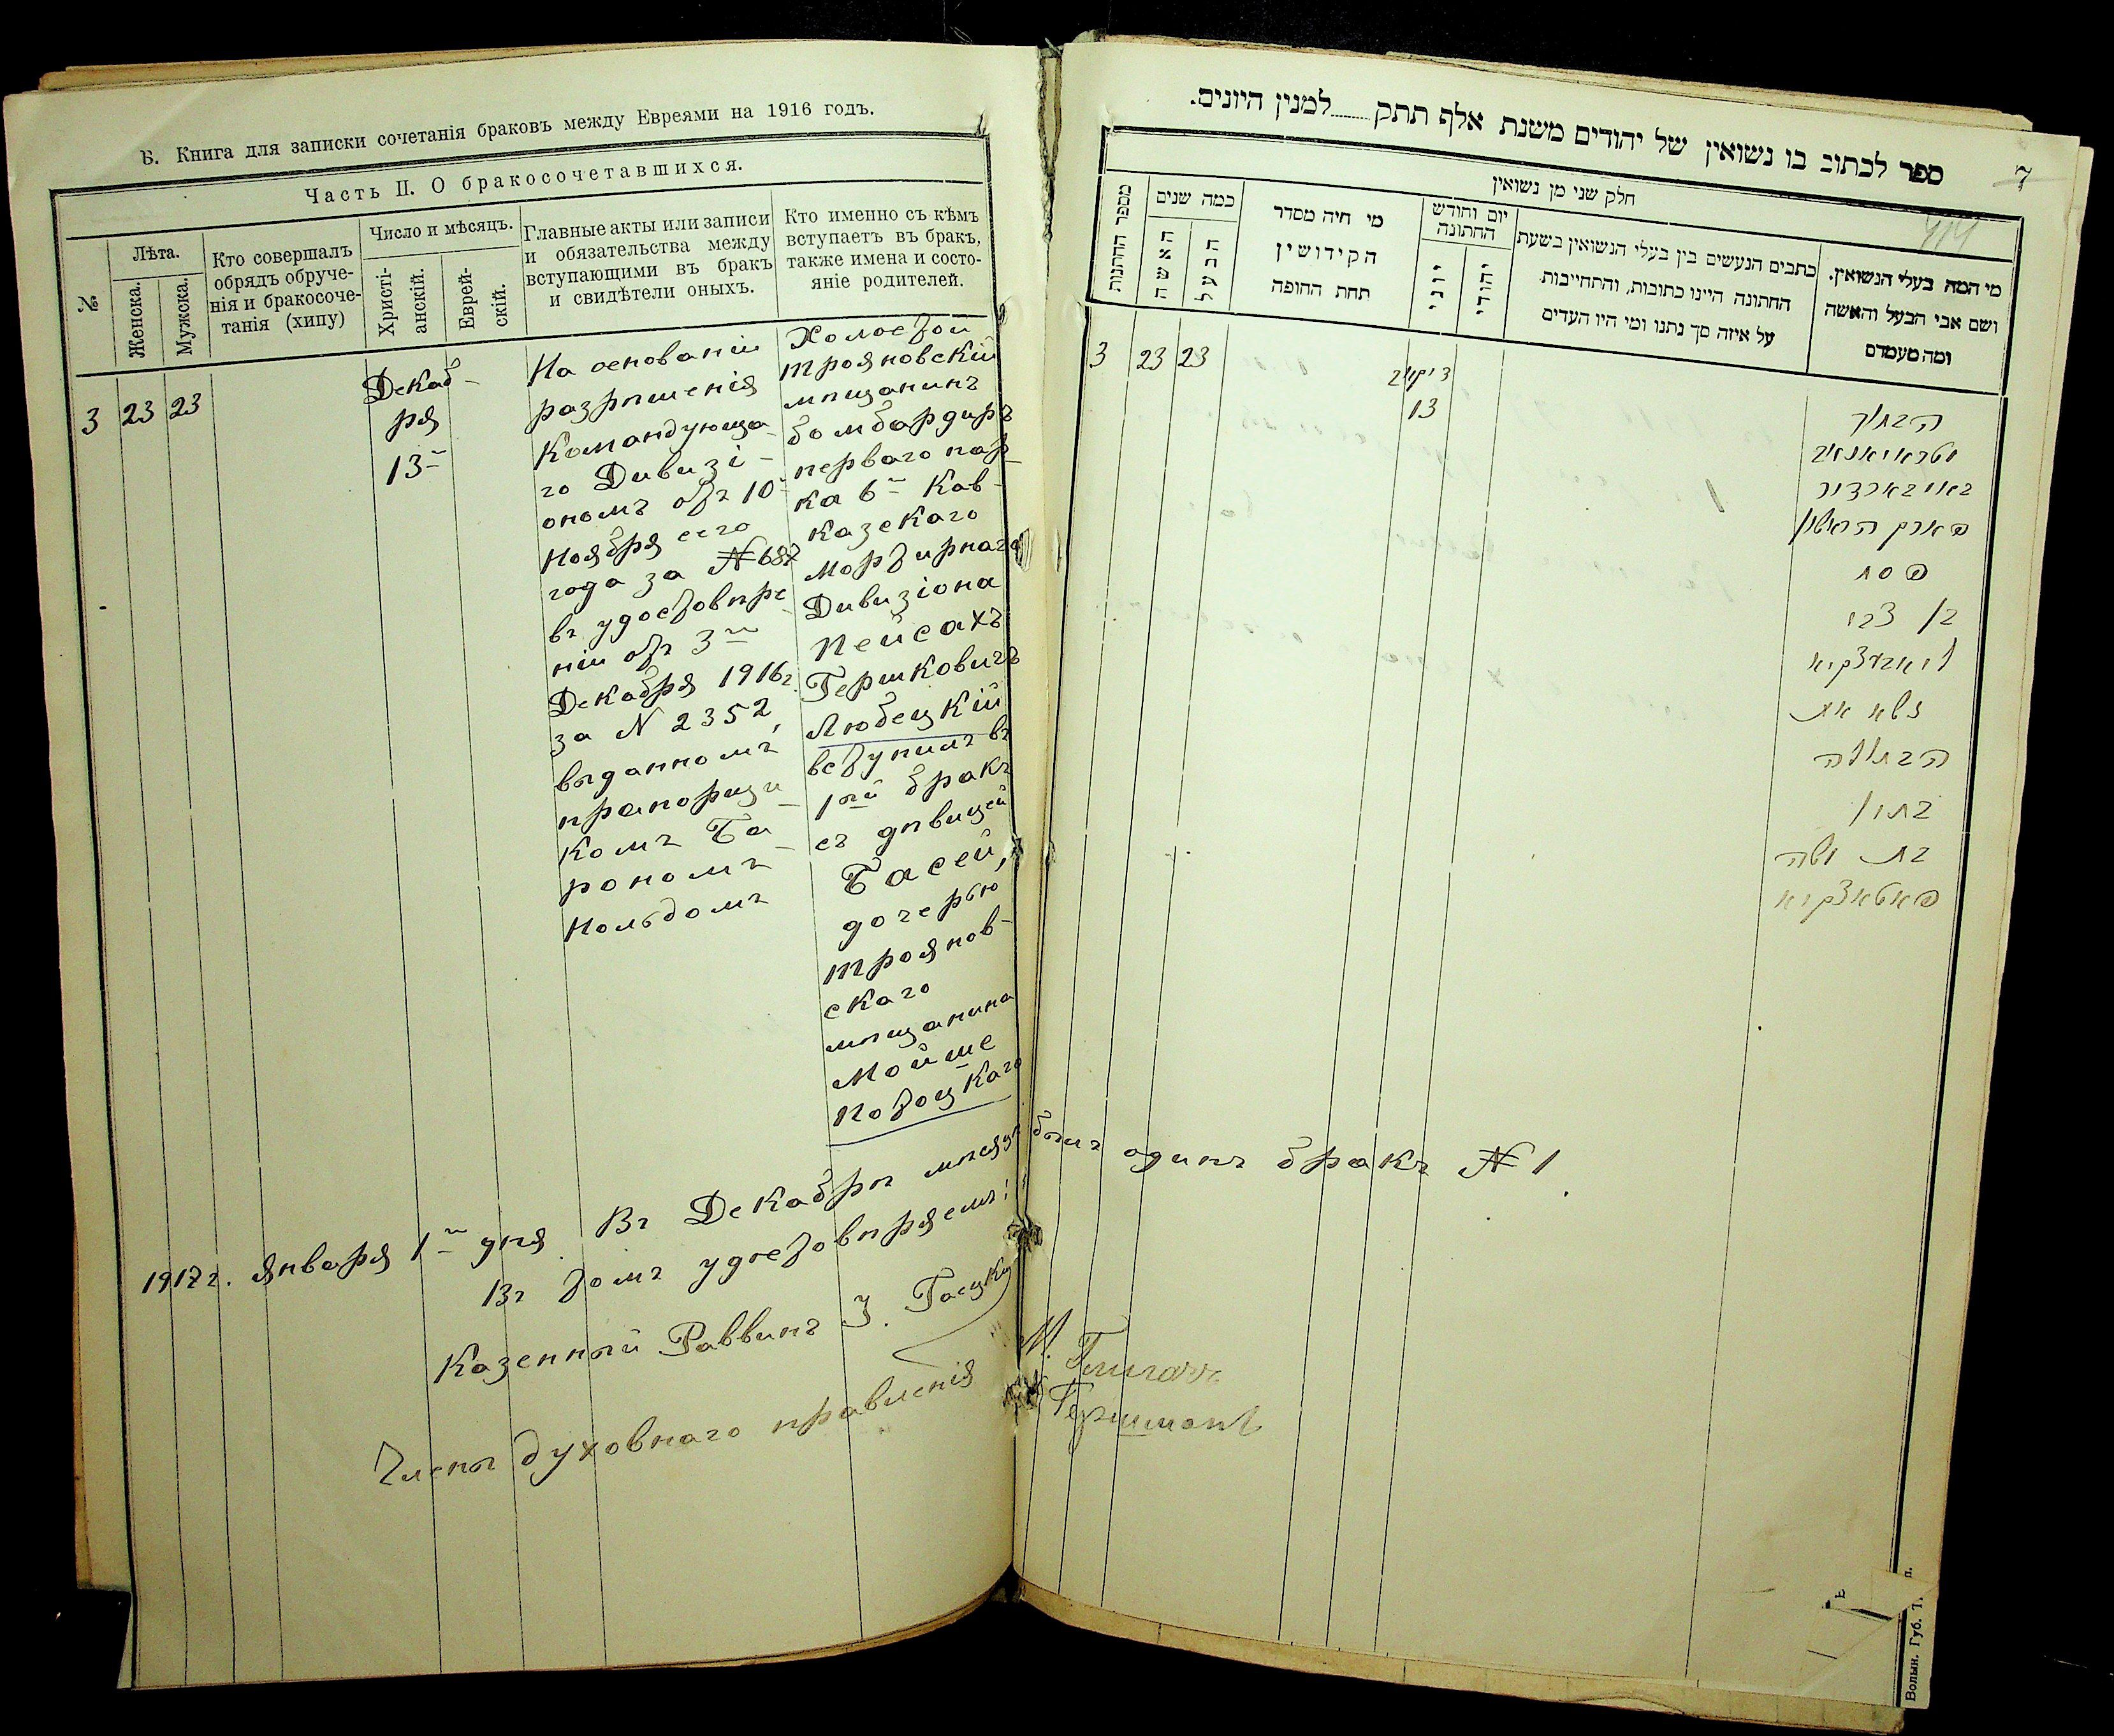 Б. Книга для записки сочетанія браковъ между Евреями на 1916 годъ.
Часть II. О бракосочетавшихся.
№
Лѣта.
Женска.
Мужска.
Кто совершалъ
обрядъ обруче-
нія и бракосоче-
танія (хипу)
Число и мѣсяцъ.
Христі-
анскій.
Еврей-
скій.
Главные акты или записи
и обязательства между
вступающими въ бракъ
и свидѣтели оныхъ.
Кто именно съ кѣмъ
вступаетъ въ бракъ,
также имена и состо-
яніе родителей.
3
23
23
Декаб-
ря
13-
На основаніи
разрѣшенія
Командующа-
го Дивизі-
ономъ отъ 10-
Ноября сего
года за № 687
въ удостовѣре-
ніи отъ 3-
Декабря 1916г.
за N 2352,
выданномъ
прапорщи-
комъ Ба-
рономъ
Нольдомъ
Холостой
трояновскій
мѣщанинъ
бомбардиръ
перваго пар-
ка 6- Кав-
казскаго
Мортирнаго
Дивизіона
Пейсахъ
Гершковичъ
Любецкій
вступилъ въ
1ый бракъ
съ дѣвицей
Басей,
дочерью
троянов-
скаго
мѣщанина
Мойше
Потоцкаго
1917г. Января 1- дня. Въ Декабрѣ мѣсяцѣ былъ одинъ бракъ № 1.
Въ томъ удостовѣряемъ:
Казенный Раввинъ
Члены духовнаго правленія
Гершманъ
ספר לכתוב בו נשואין של יהודים משנת אלף תתק למנין היונים.
7
חלק שני מן נשואין
מספר החתנות
כמה שנים
האשה
הבעל
מי היה מסדר
הקידושין
תחת החופה
יום וחודש
החתונה
יוני
יהודי
כתבים הנעשים בין בעלי הנשואין בשעת
החתונה היינו כתובות, והתחייבות
על איזה סך נתנו ומי היו העדים
מי המה בעלי הנשואין.
ושם אבי הבעל והאשה
ומה מעמדם
3
23
23
13
הבחור
פארק הראשון
פסח
בן צבי
נשא את
הבתולה
בת משה
פאטאצקיא
Волын. Губ. Т.